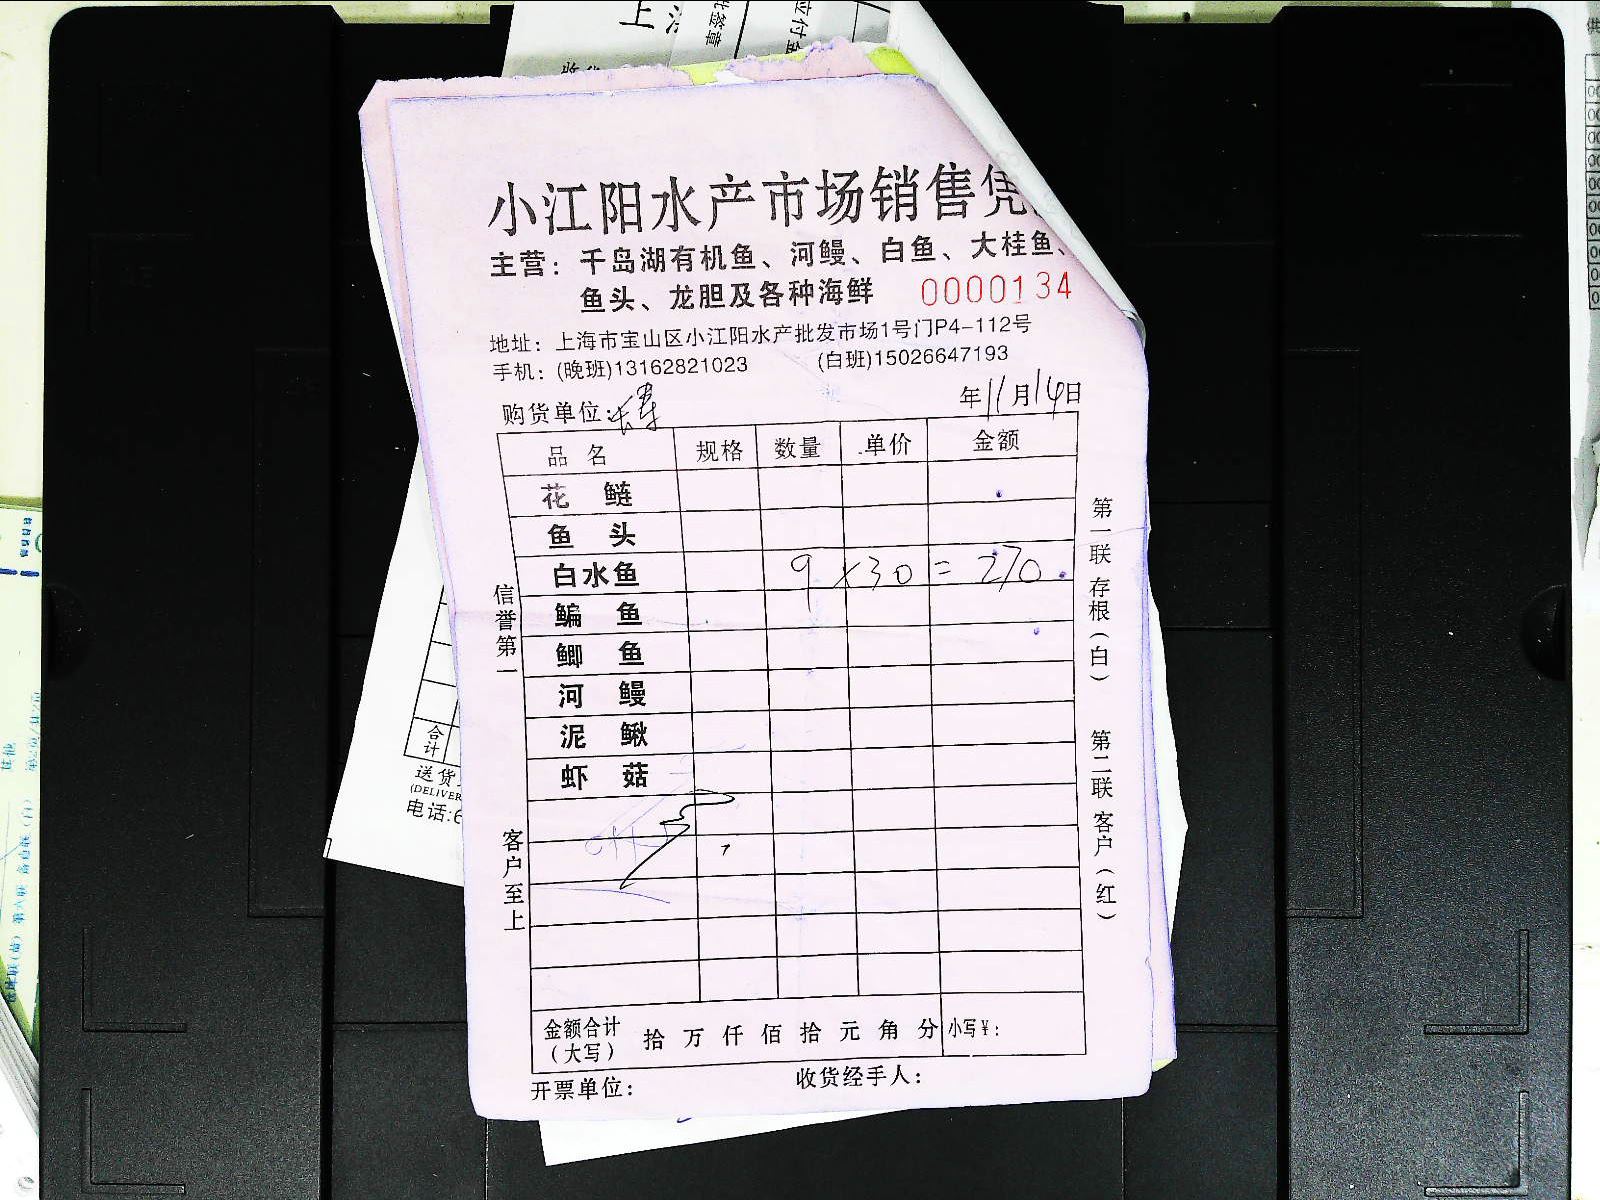 小江阳水产市场销售凭
主营：千岛湖有机鱼、河鳗、白鱼、大桂鱼、
鱼头、龙胆及各种海鲜 0000134
地址：上海市宝山区小江阳水产批发市场1号门P4-112号
手机：(晚班)13162821023 (白班)15026647193
购货单位: 年11月14日
品名 规格 数量 单价 金额
花鲢
鱼头
白水鱼 9 x 30 = 270
鳊鱼
鲫鱼
河鳗
泥鳅
虾菇
金额合计（大写） 拾 万 仟 佰 拾 元 角 分 小写¥:
开票单位: 收货经手人:
信誉第一
客户至上
第一联 存根（白）
第二联 客户（红）
合计
送货
(DELIVER
电话:6